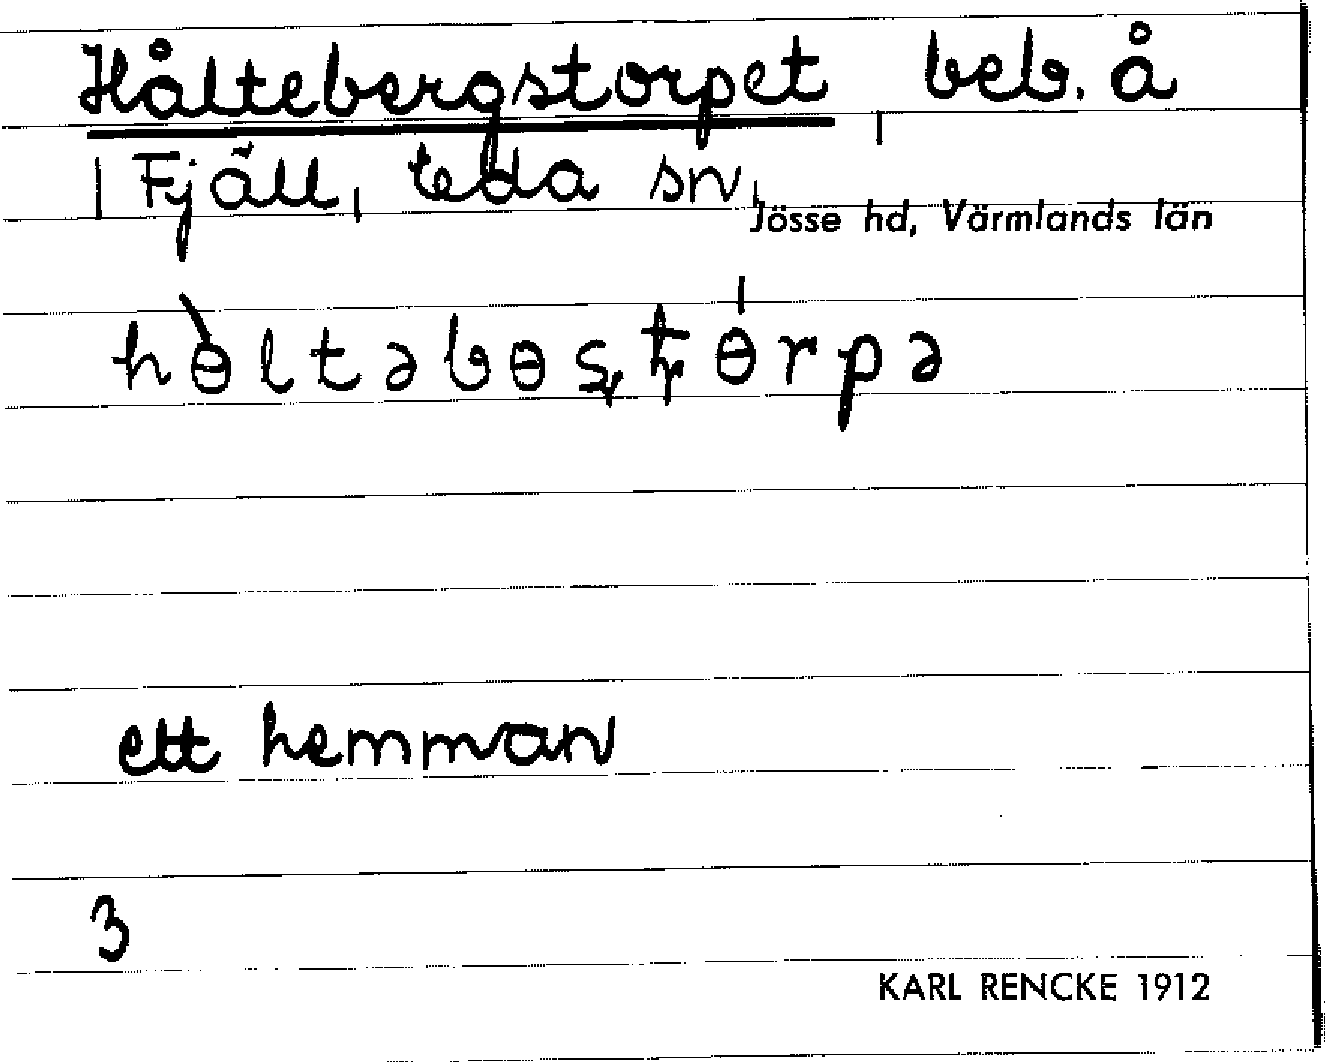 Håltebergstorpet, beb. å
Fjäll, Eda sn,
Jösse hd, Värmlands län
hɵ̀ltəbɵʂʈɵ́rpə
ett hemman
3
KARL RENCKE 1912